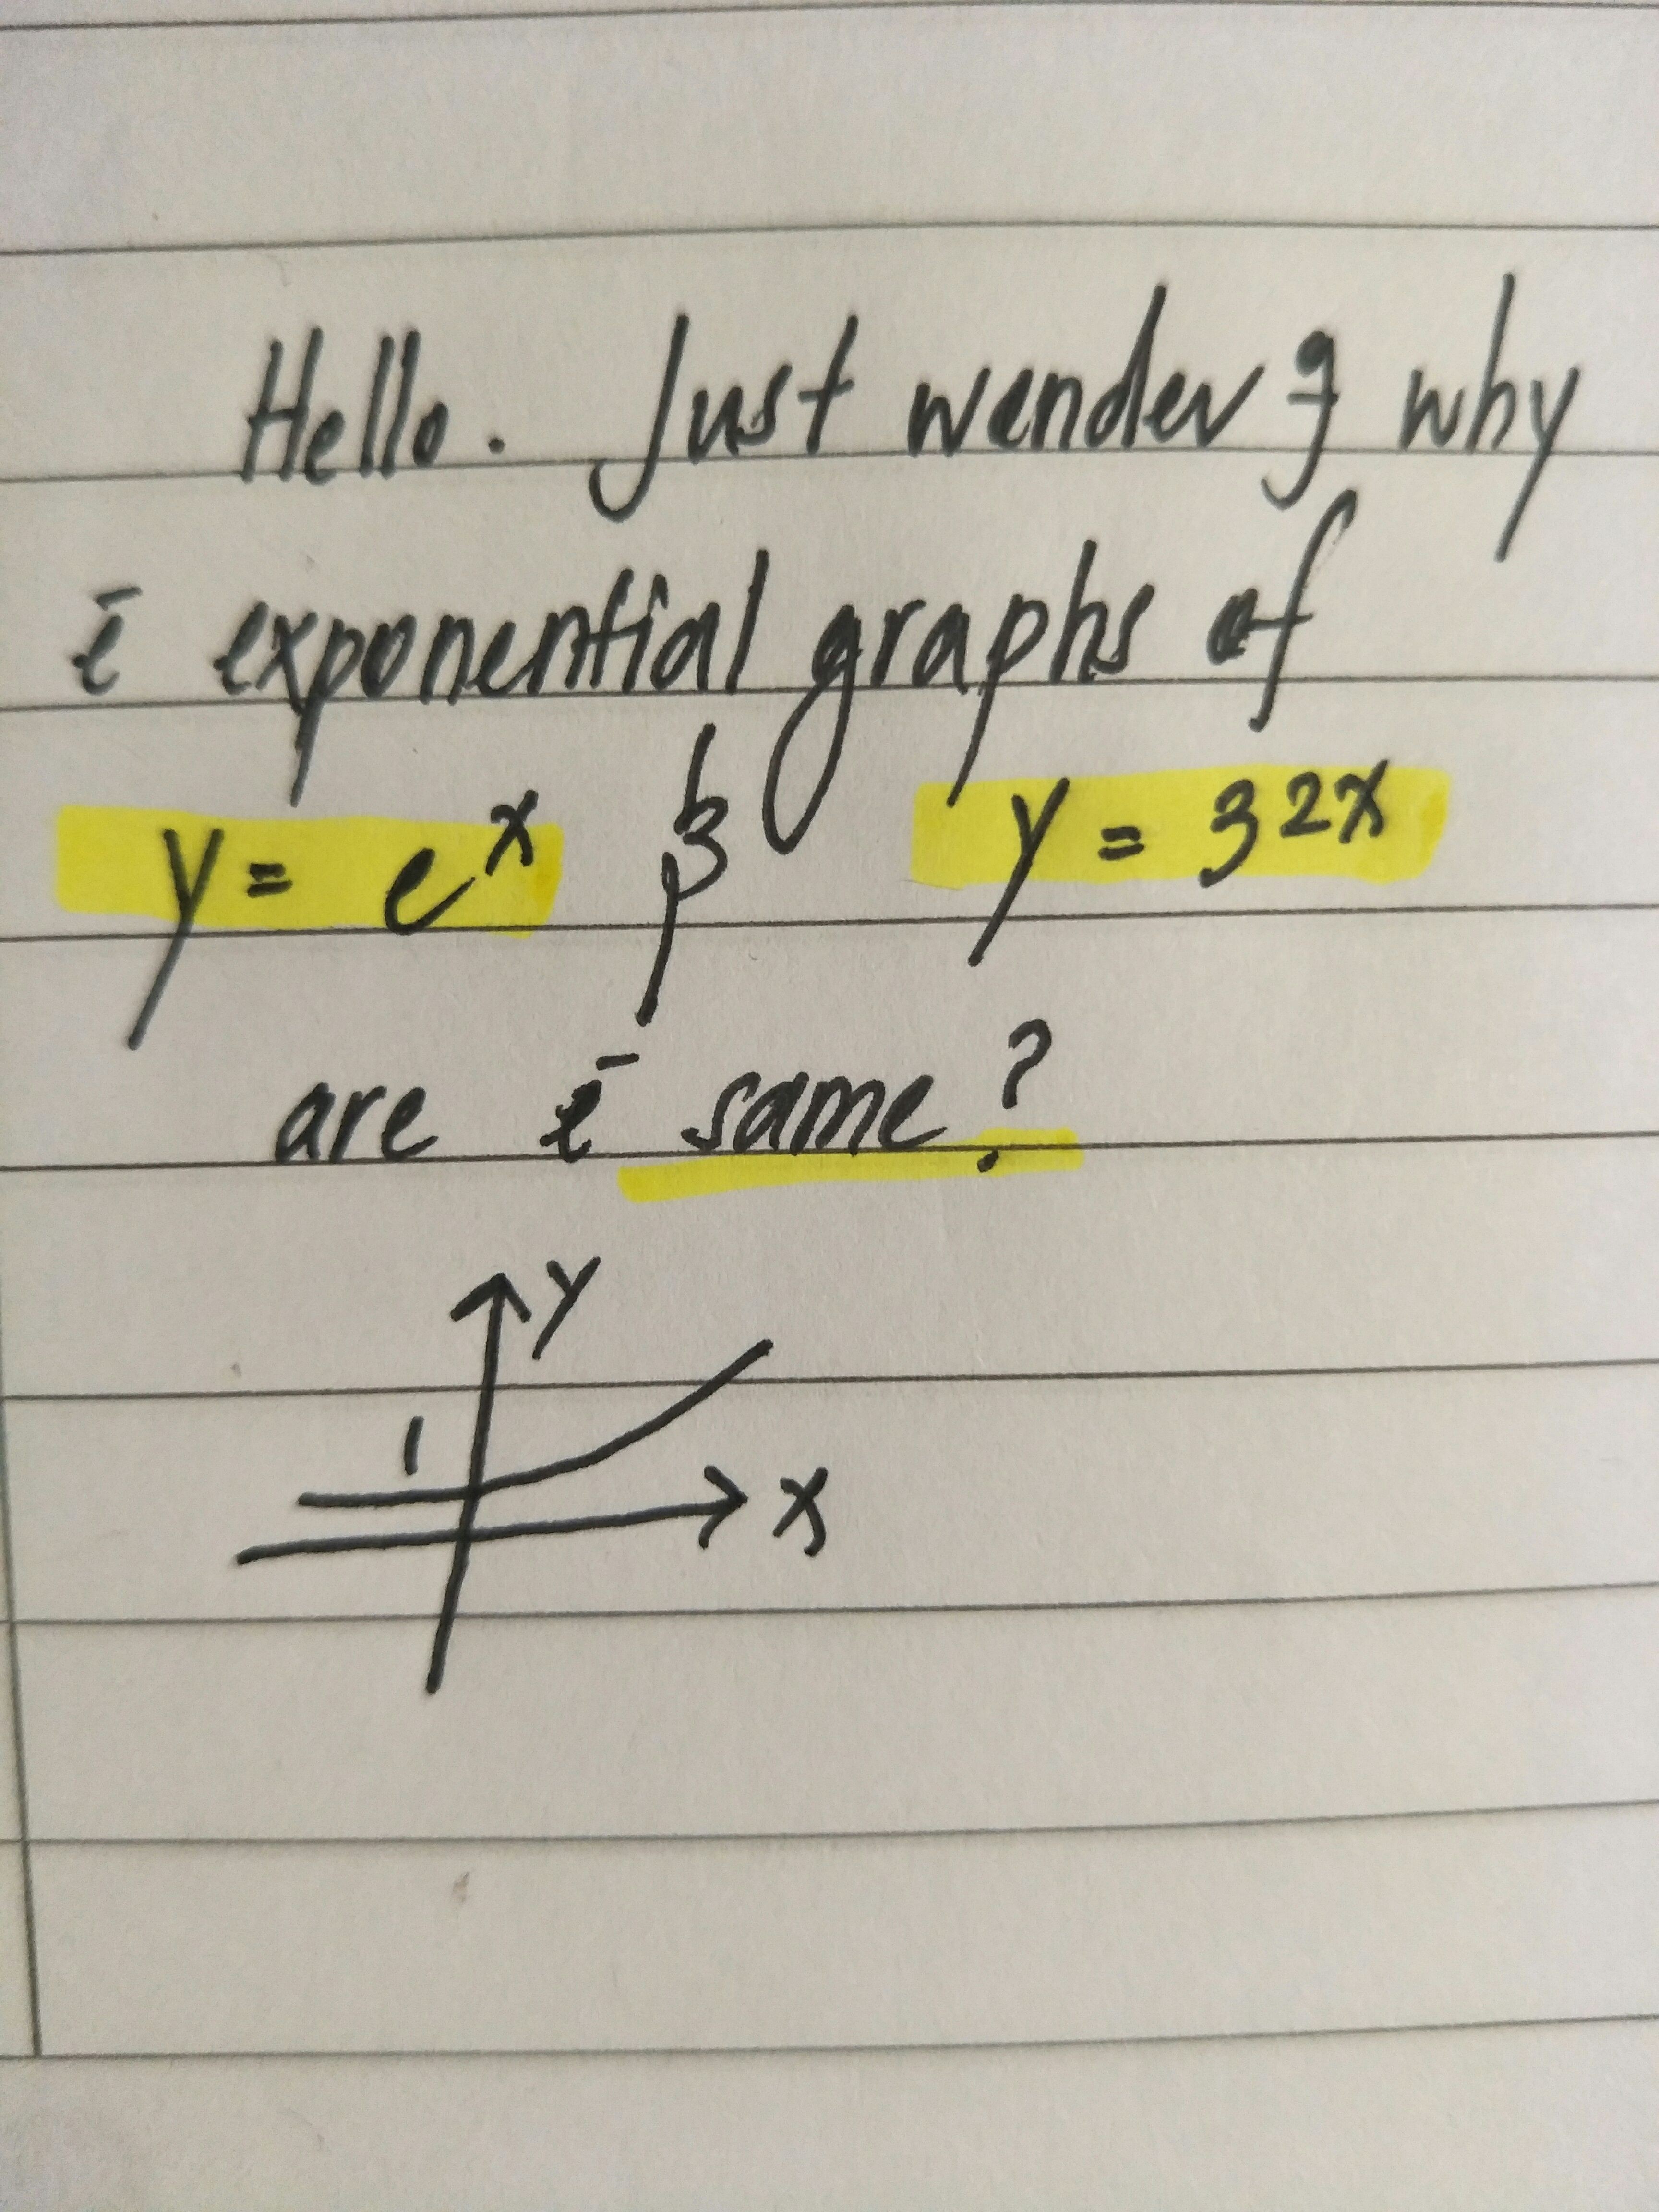 Hello. Just wonderg why
ē exponential graphs of
y = e^x & y = 3^2x
are ē same?
y
1
x